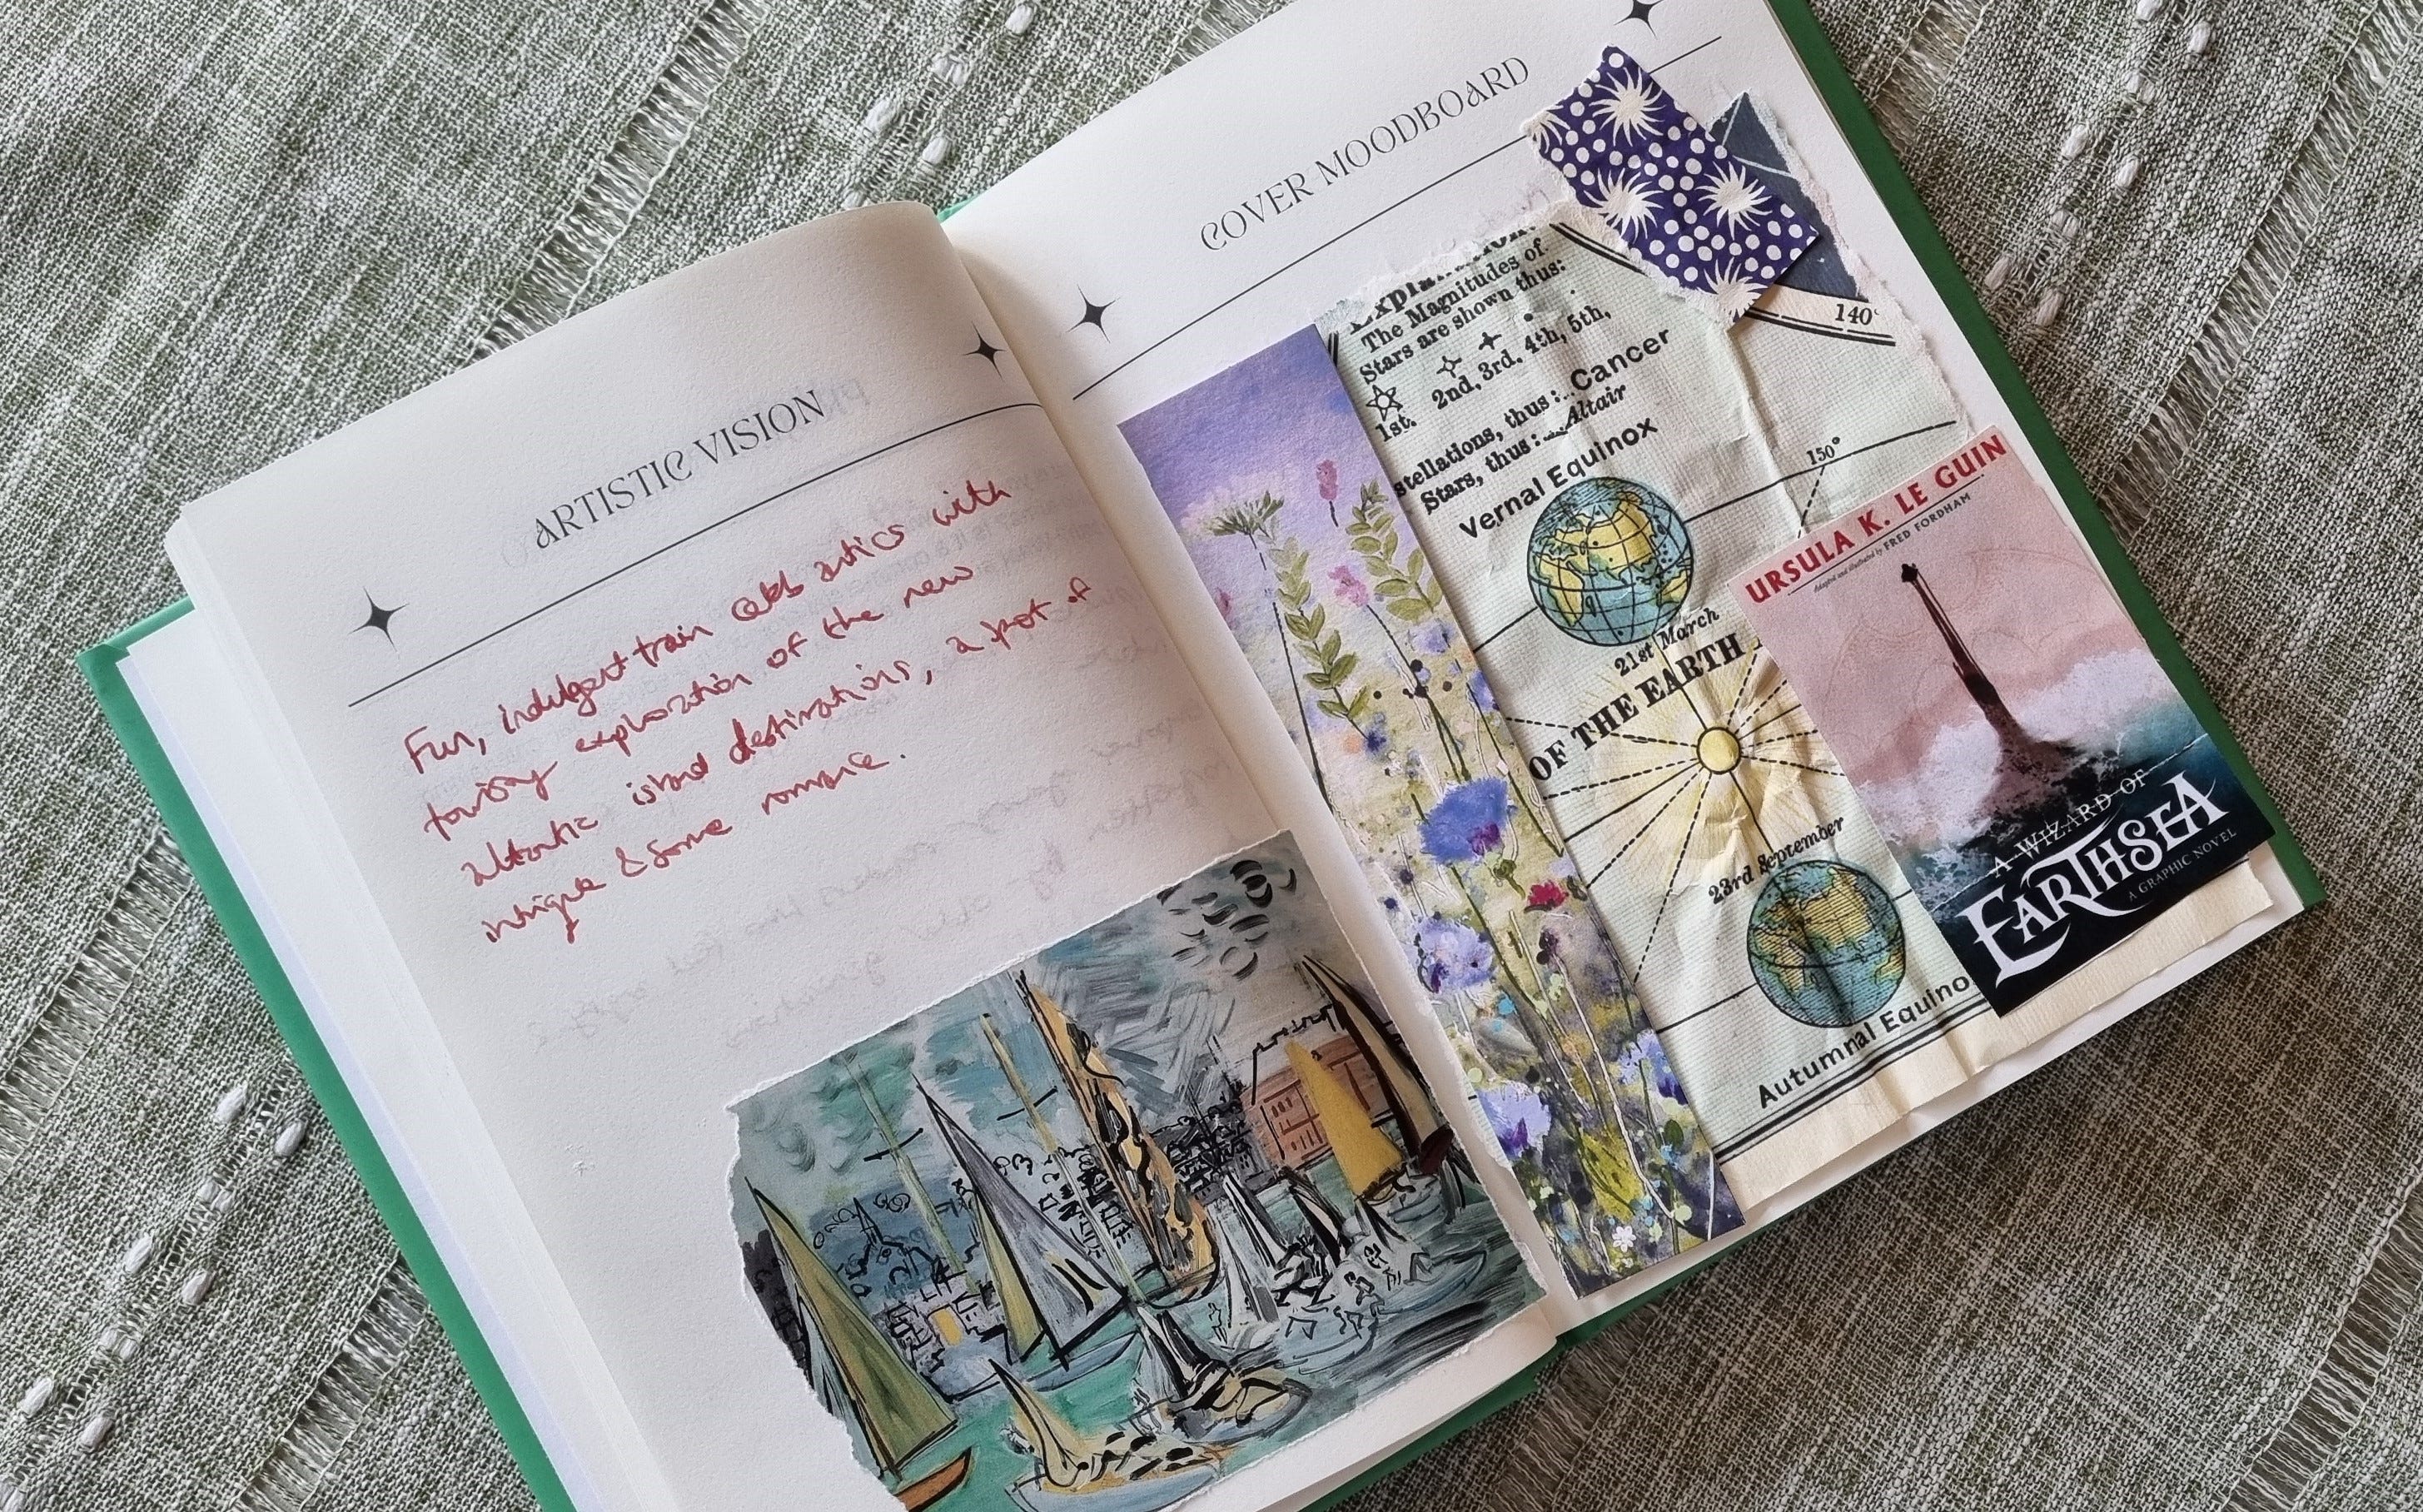 ARTISTIC VISION
Fun, indulgent train antics with
exploration of the new
island destinations, a spot of
intrigue & some romance.
COVER MOODBOARD
The Magnitudes of
Stars are shown thus:
1st. 2nd, 3rd, 4th, 5th,
stellations, thus:.. Cancer
Stars, thus:... Altair
Vernal Equinox
21st March
OF THE EARTH
23rd September
Autumnal Equino
140°
150°
URSULA K. LE GUIN
Adapted and illustrated by FRED FORDHAM
A WIZARD OF
EARTHSEA
A GRAPHIC NOVEL